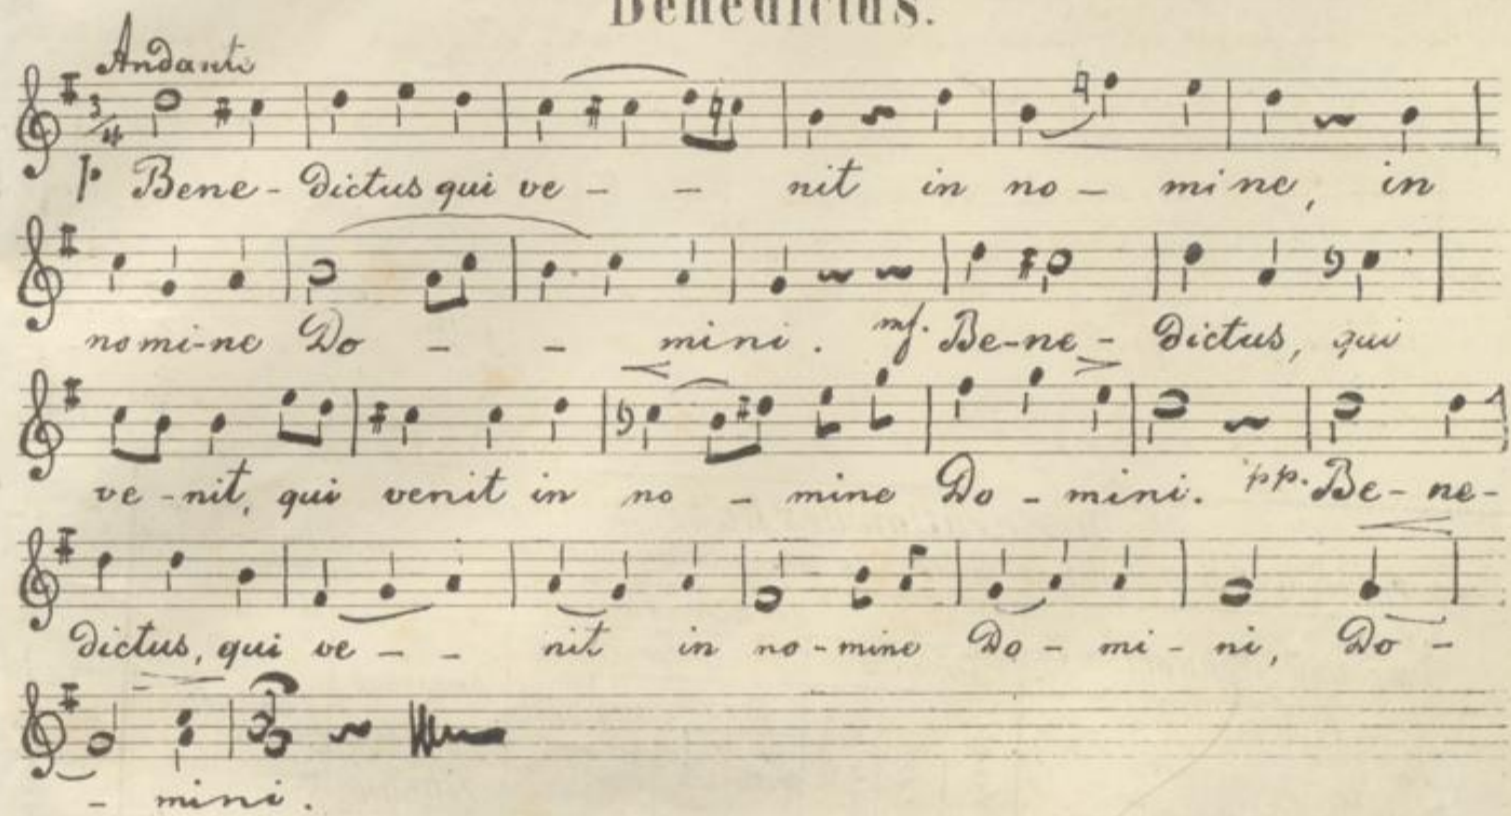 Benedictus.
Andante
3/4
p Bene - dictus qui ve - - nit in no - mine, in
nomi-ne Do - - mini. mf. Be-ne- dictus, qui
ve-nit, qui venit in no - mine Do - mini. pp. Be- ne-
dictus, qui ve - - nit in no-mine Do - mi - ni, Do -
- mini.